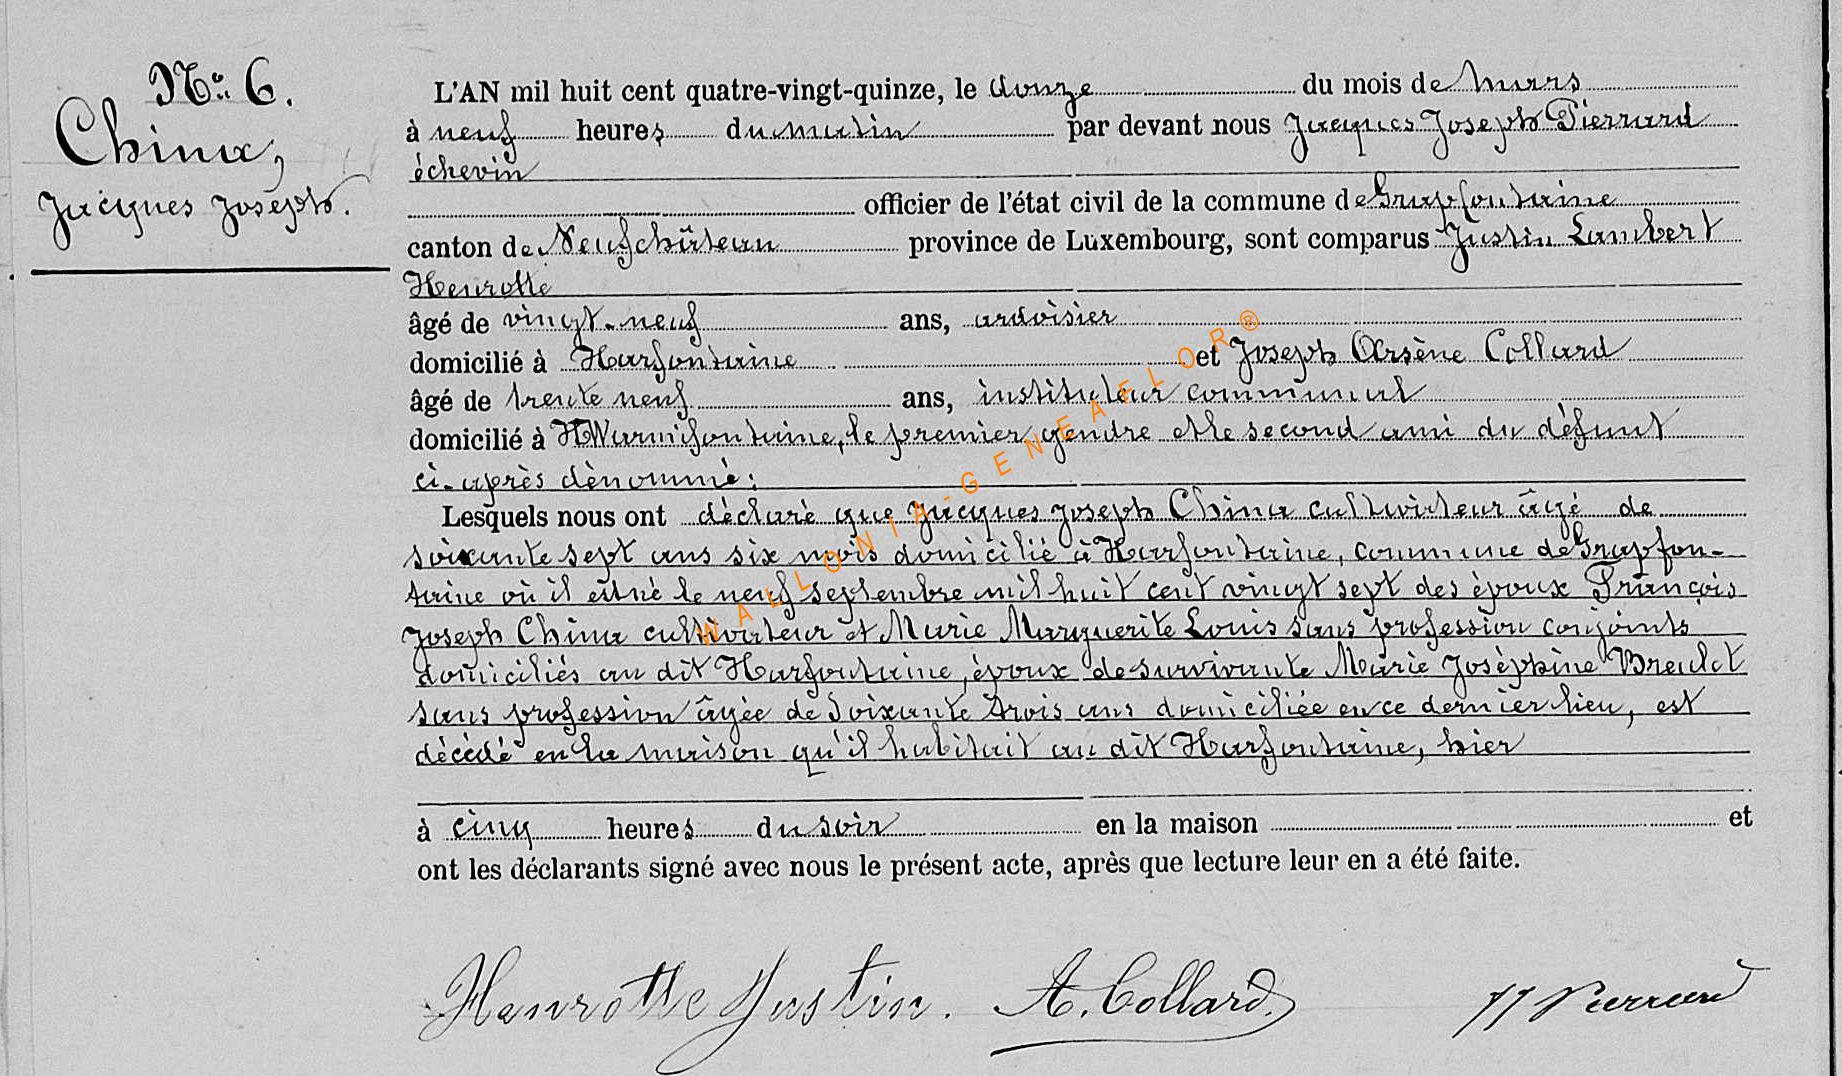 N° 6.
China,
Jacques Joseph.
L'AN mil huit cent quatre-vingt-quinze, le douze du mois de mars
à neuf heures du matin par devant nous Jacques Joseph Pierrard
échevin
officier de l'état civil de la commune de Grapfontaine
canton de Neufchâteau province de Luxembourg, sont comparus Justin Lambert
Henrotte
âgé de vingt-neuf ans, ardoisier
domicilié à Harfontaine et Joseph Arsène Collard
âgé de trente neuf ans, instituteur communal
domicilié à Warmifontaine, le premier gendre et le second ami du défunt
ci-après dénommé:
Lesquels nous ont déclaré que Jacques Joseph China cultivateur âgé de
soixante sept ans six mois domicilié à Harfontaine, commune de Grapfon-
taine où il est né le neuf septembre mil huit cent vingt sept des époux François
Joseph China cultivateur et Marie Marguerite Louis sans profession conjoints
domiciliés au dit Harfontaine, époux de survivante Marie Joséphine Breulet
sans profession âgée de soixante trois ans domiciliée en ce dernier lieu, est
décédé en la maison qu'il habitait au dit Harfontaine, hier
à cinq heures du soir en la maison et
ont les déclarants signé avec nous le présent acte, après que lecture leur en a été faite.
Henrotte Justin. A. Collard JJ Pierrard
WALLONIA-GENEAFLOR®